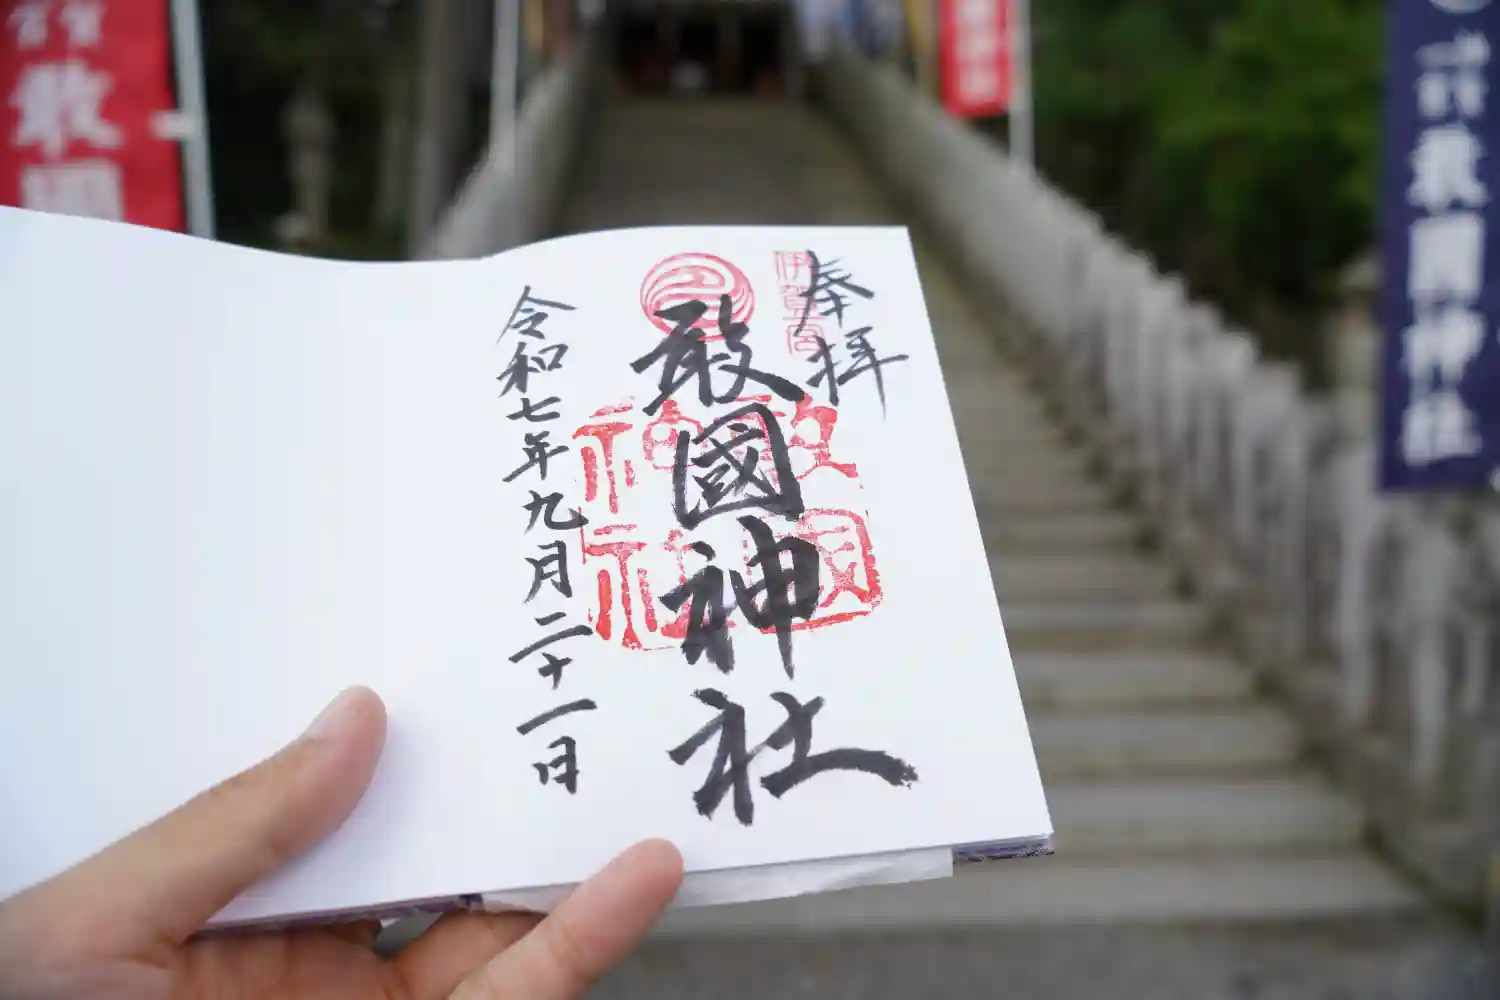 奉拝
伊賀一宮
敢國神社
令和七年九月二十一日
敢國神社
敢國